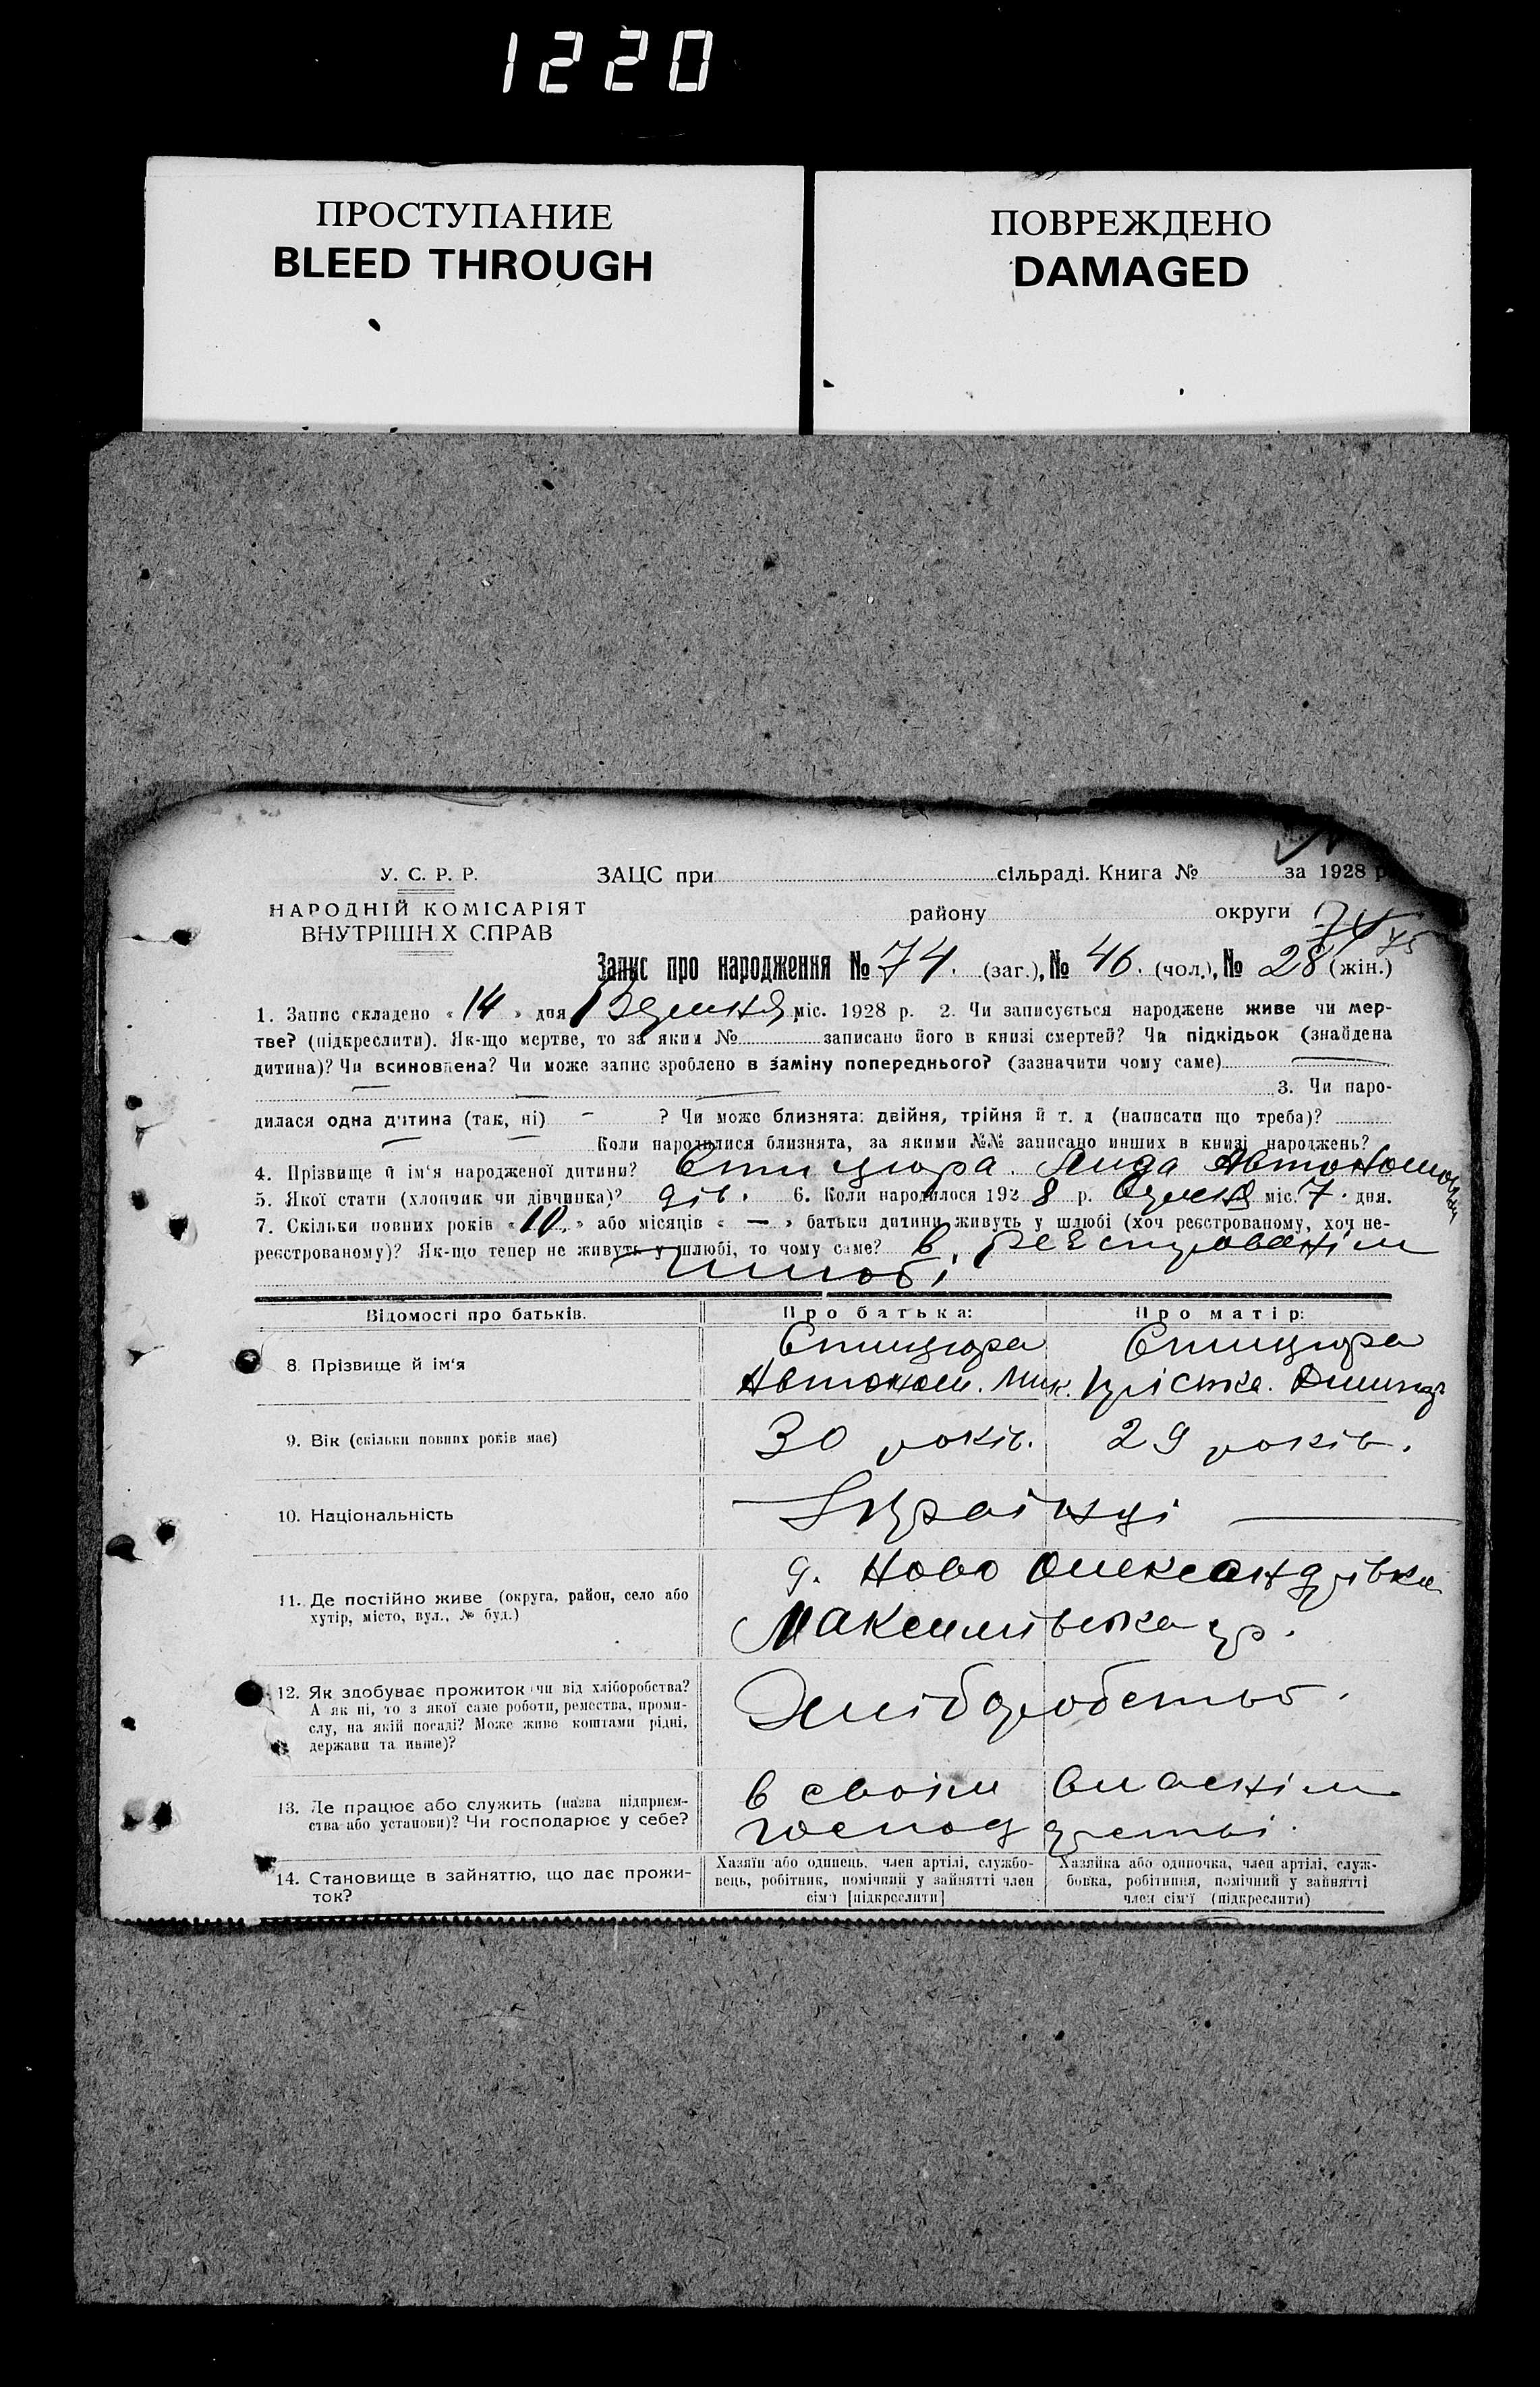 1220
ПРОСТУПАНИЕ
BLEED THROUGH
ПОВРЕЖДЕНО
DAMAGED
У. С. Р. Р.
НАРОДНІЙ КОМІСАРІЯТ
ВНУТРІШН Х СПРАВ
ЗАЦС при сільраді. Книга № за 1928 р
району округи 74 75
Запис про народження № 74. (заг.), № 46. (чол.), № 28 (жін.)
1. Запис складено « 14 » дня Вересня міс. 1928 р. 2. Чи записується народжене живе чи мер-
тве? (підкреслити). Як-що мертве, то за яким № записано його в книзі смертей? Чи підкідьок (знайдена
дитина)? Чи всиновлена? Чи може запис зроблено в заміну попереднього? (зазначити чому саме)
3. Чи наро-
дилася одна дитина (так, ні) – ? Чи може близнята: двійня, трійня й т. д (написати що треба)?
Коли народилися близнята, за якими №№ записано инших в книзі народжень?
4. Прізвище й ім'я народженої дитини? Стицюра Лида
5. Якої стати (хлопчик чи дівчинка)? дів. 6. Коли народилося 192 8 р. міс. 7. дня.
7. Скільки повних років « 10 » або місяців « — » батьки дитини живуть у шлюбі (хоч реєстрованому, хоч не-
реєстрованому)? Як-що тепер не живуть у шлюбі, то чому саме? В
шлюбі
Відомості про батьків. Про батька: Про матір:
8. Прізвище й ім'я Стицюра Стицюра
Автоном. Мик.
9. Вік (скільки повних років має) 30 років. 29 років.
10. Національність Українці
11. Де постійно живе (округа, район, село або
хутір, місто, вул., № буд.)
д. Ново Олександрівка
12. Як здобуває прожиток (чи від хліборобства?
А як ні, то з якої саме роботи, ремества, проми-
слу, на якій посаді? Може живе коштами рідні,
держави та инше)?
Хліборобство.
13. Де працює або служить (назва підприєм-
ства або установи)? Чи господарює у себе?
в своїм власнім
господарстві.
14. Становище в зайняттю, що дає прожи-
ток?
Хазяїн або одинець, член артілі, службо-
вець, робітник, помічний у зайнятті член
сім'ї [підкреслити]
Хазяйка або одиночка, член артілі, служ-
бовка, робітниця, помічний у зайнятті
член сім'ї (підкреслити)